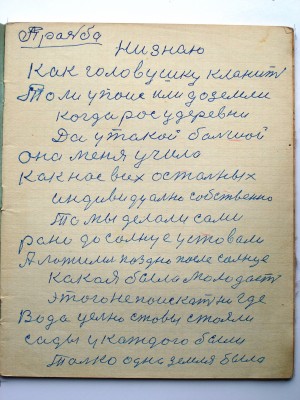 Правба
Низнаю
Как головушку кланит
То ли упоис или доземли
когда росу деревни
Да у такой балшой
она меня учила
Как нас всех осталных
индивидуално собственно
То мы делали сами
рано до солнце уставали
А ложилис поздно после солнце
Какая была молодост
этого непоискат ни где
Вода целно ставы стояли
сады у каждого были
Талко одна земля была